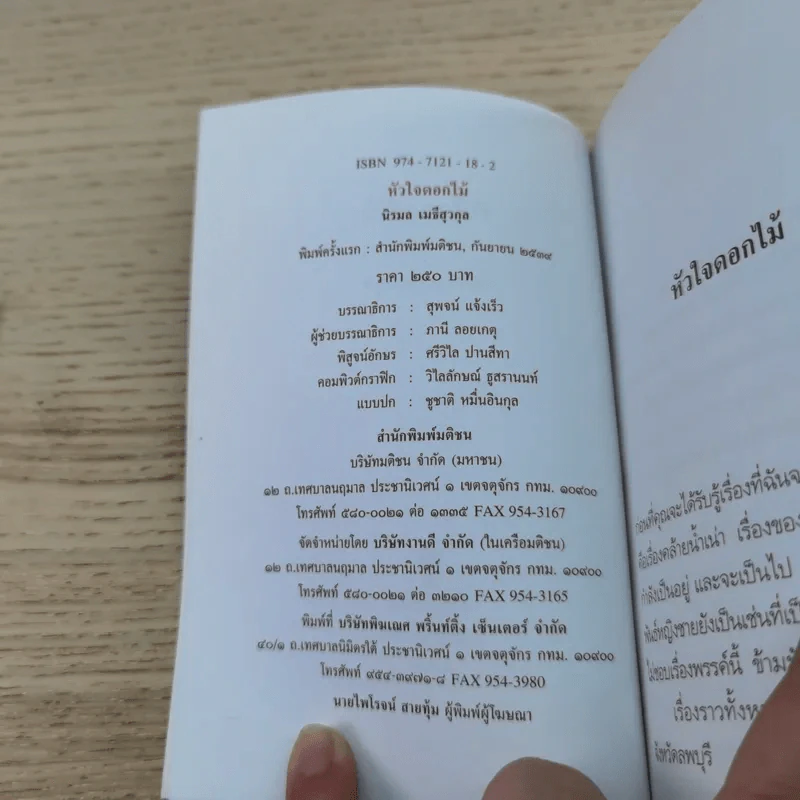 ISBN 974 - 7121 - 18 - 2
หัวใจดอกไม้
นิรมล เมธีสุวกุล
พิมพ์ครั้งแรก : สำนักพิมพ์มติชน, กันยายน ๒๕๓๙
ราคา ๒๕๐ บาท
บรรณาธิการ : สุพจน์ แจ้งเร็ว
ผู้ช่วยบรรณาธิการ : ภานี ลอยเกตุ
พิสูจน์อักษร : ศรีวิไล ปานสีทา
คอมพิวต์กราฟิก : วิไลลักษณ์ ธูสรานนท์
แบบปก : ชูชาติ หมื่นอินกุล
สำนักพิมพ์มติชน
บริษัทมติชน จำกัด (มหาชน)
๑๒ ถ.เทศบาลนฤมาล ประชานิเวศน์ ๑ เขตจตุจักร กทม. ๑๐๙๐๐
โทรศัพท์ ๕๘๐-๐๐๒๑ ต่อ ๑๓๓๕ FAX 954-3167
จัดจำหน่ายโดย บริษัทงานดี จำกัด (ในเครือมติชน)
๑๒ ถ.เทศบาลนฤมาล ประชานิเวศน์ ๑ เขตจตุจักร กทม. ๑๐๙๐๐
โทรศัพท์ ๕๘๐-๐๐๒๑ ต่อ ๓๒๑๐ FAX 954-3165
พิมพ์ที่ บริษัทพิฆเณศ พริ้นท์ติ้ง เซ็นเตอร์ จำกัด
๔๐/๑ ถ.เทศบาลนิมิตรใต้ ประชานิเวศน์ ๑ เขตจตุจักร กทม. ๑๐๙๐๐
โทรศัพท์ ๙๕๔-๓๙๗๑-๘ FAX 954-3980
นายไพโรจน์ สายทุ้ม ผู้พิมพ์ผู้โฆษณา
หัวใจดอกไม้
ก่อนที่คุณจะได้รับรู้เรื่องที่ฉันจ
คือเรื่องคล้ายน้ำเน่า เรื่องของ
กำลังเป็นอยู่ และจะเป็นไป
พันธ์หญิงชายยังเป็นเช่นที่เป็
ไม่ชอบเรื่องพรรค์นี้ ข้าม
เรื่องราวทั้งห
จังหวัดลพบุรี